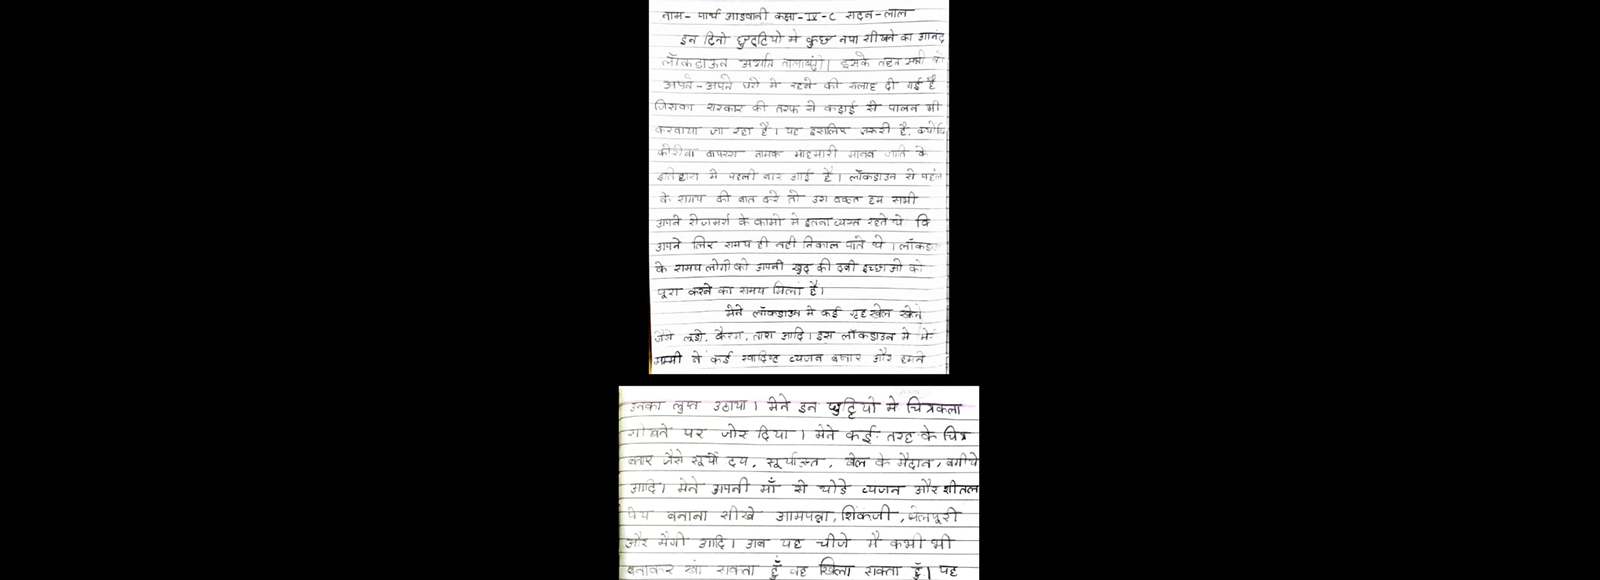 नाम- पार्थ आडवानी कक्षा-IV-C सदन-लाल
इन दिनो छुट्टियो मे कुछ नया सीखने का आनंद
लॉकडाउन अर्थात तालाबंदी। इसके तहत सभी को
अपने-अपने घरो मे रहने की सलाह दी गई है
जिसका सरकार की तरफ से कड़ाई से पालन भी
करवाया जा रहा है। यह इसलिए जरूरी है, क्योंकि
कोरोना वायरस नामक माहमारी मानव जाति के
इतिहास में पहली बार आई है। लॉकडाउन से पहले
के समय की बात करे तो उस वक्त हम सभी
अपने रोजमर्रा के कामो मे इतना व्यस्त रहते थे कि
अपने लिए समय ही नही निकाल पाते थे। लॉकडा
के समय लोगो को अपनी खुद की दबी इच्छाओ को
पूरा करने का समय मिला है।
मैने लॉकडाउन मे कई गृह खेल खेले
जैसे लूडो, कैरम, ताश आदि। इस लॉकडाउन मे मे
मम्मी ने कई स्वादिष्ट व्यजन बनाए और हमने
उनका लुफ्त उठाया। मैने इन छुट्टियो मे चित्रकला
सीखने पर जोर दिया। मैने कई तरह के चित्र
बनाए जैसे सूर्योदय, सूर्यास्त, खेल के मैदान, बगीचे
आदि। मैने अपनी माँ से थोडे व्यजन और शीतल
पेय बनाना सीखे आमपन्ना, शिंकजी, भेलपूरी
और मैगी आदि। अब यह चीजे मै कभी भी
बनाकर खा सकता हूँ वह खिला सकता हूँ। यह